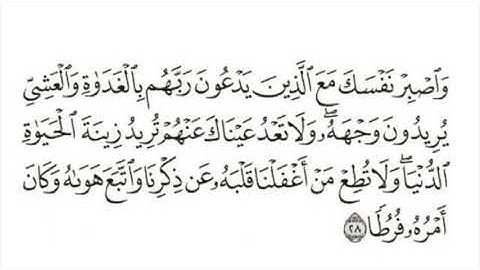 وَٱصْبِرْ نَفْسَكَ مَعَ ٱلَّذِينَ يَدْعُونَ رَبَّهُم بِٱلْغَدَوٰةِ وَٱلْعَشِيِّ
يُرِيدُونَ وَجْهَهُۥۖ وَلَا تَعْدُ عَيْنَاكَ عَنْهُمْ تُرِيدُ زِينَةَ ٱلْحَيَوٰةِ
ٱلدُّنْيَاۖ وَلَا تُطِعْ مَنْ أَغْفَلْنَا قَلْبَهُۥ عَن ذِكْرِنَا وَٱتَّبَعَ هَوَىٰهُ وَكَانَ
أَمْرُهُۥ فُرُطًا ۝٢٨